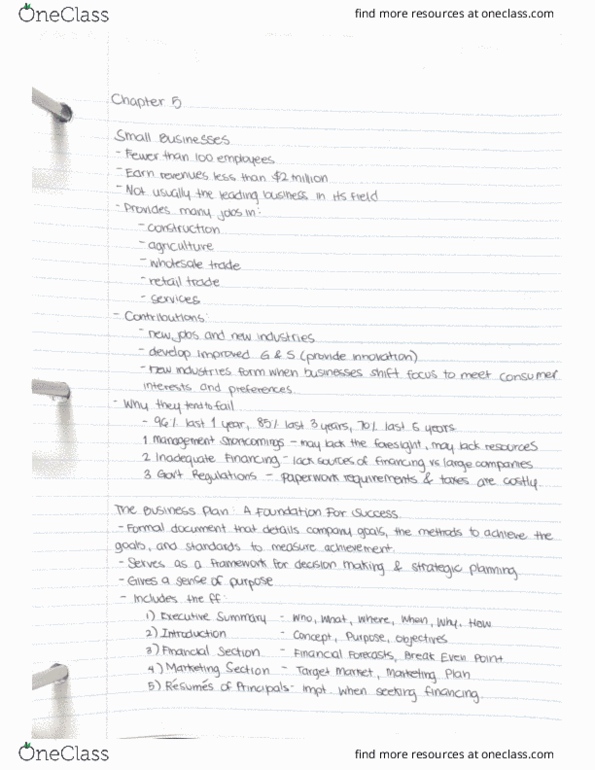 OneClass
find more resources at oneclass.com
Chapter 5
Small Businesses
- Fewer than 100 employees
- Earn revenues less than $2 million
- Not usually the leading business in its field
- Provides many jobs in:
- construction
- agriculture
- wholesale trade
- retail trade
- services
- Contributions:
- new jobs and new industries
- develop improved G & S (provide innovation)
- new industries form when businesses shift focus to meet consumer
interests and preferences
- Why they tend to fail
- 96% last 1 year, 85% last 3 years, 70% last 5 years
1 Management Shortcomings - may lack the foresight, may lack resources
2 Inadequate Financing - lack sources of financing vs large companies
3 Gov't Regulations - paperwork requirements & taxes are costly
The Business Plan: A Foundation For Success
- Formal document that details company goals, the methods to achieve the
goals, and standards to measure achievement.
- Serves as a framework for decision making & strategic planning
- Gives a sense of purpose
- Includes the ff:
1) Executive Summary - Who, What, Where, When, Why, How
2) Introduction - Concept, Purpose, Objectives
3) Financial Section - Financial Forecasts, Break Even Point
4) Marketing Section - Target Market, Marketing Plan
5) Résumés of Principals - Impt. when seeking financing
OneClass
find more resources at oneclass.com